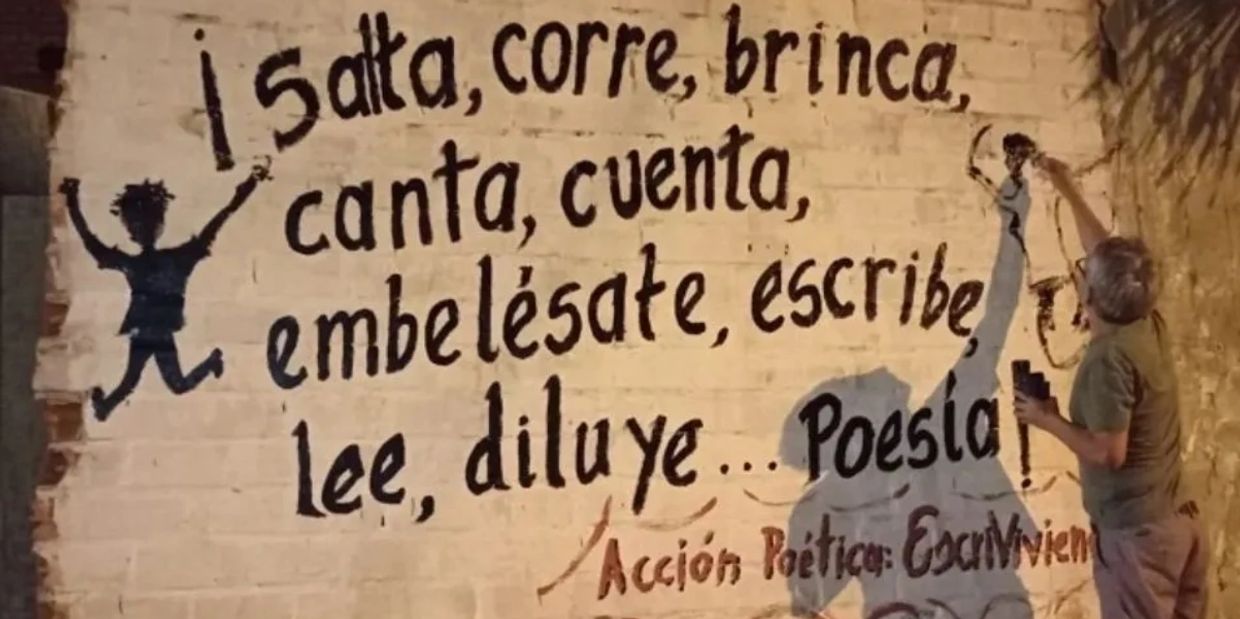 ¡Salta, corre, brinca,
canta, cuenta,
embelésate, escribe,
lee, diluye... Poesía!
Acción Poética: